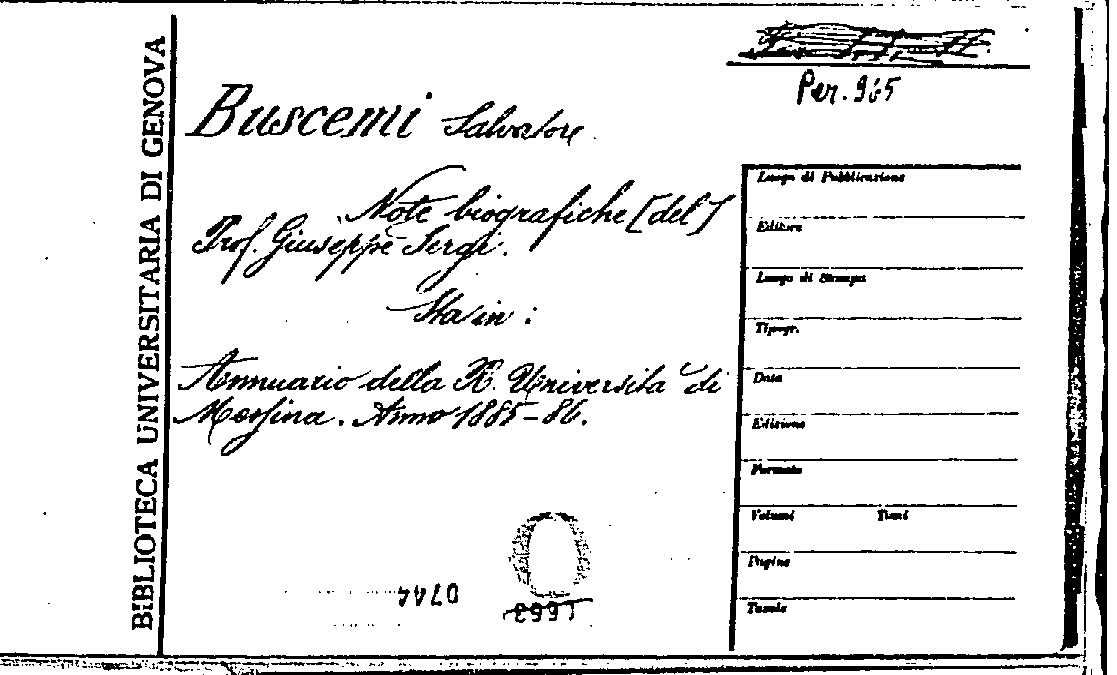 BIBLIOTECA UNIVERSITARIA DI GENOVA
Per. 965
Buscemi Salvatore
Note biografiche [del]
Prof. Giuseppe Sergi.
Sta in :
Annuario della R. Università di
Messina. Anno 1885-86.
Luogo di Pubblicazione
Editore
Luogo di Stampa
Tipogr.
Data
Edizione
Formato
Volumi Tomi
Pagine
Tavole
0744
1993